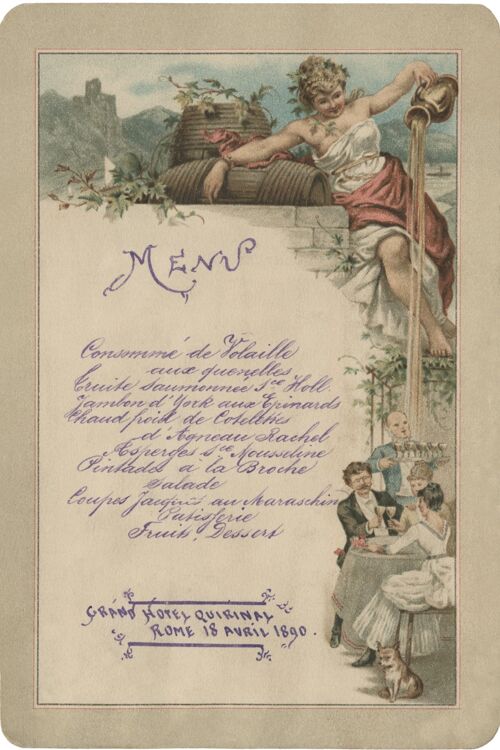 MENU
Consommé de Volaille
aux quenelles
Truite saumonnée Sce Holl.
Jambon d'York aux Epinards
Chaud froit de Cotelettes
d'Agneau Rachel
Asperges Sce Mousseline
Pintades à la Broche
Salade
Coupes Jacques au Maraschin
Patisserie
Fruits, Dessert
GRAND HOTEL QUIRINAL
ROME 18 AVRIL 1890.